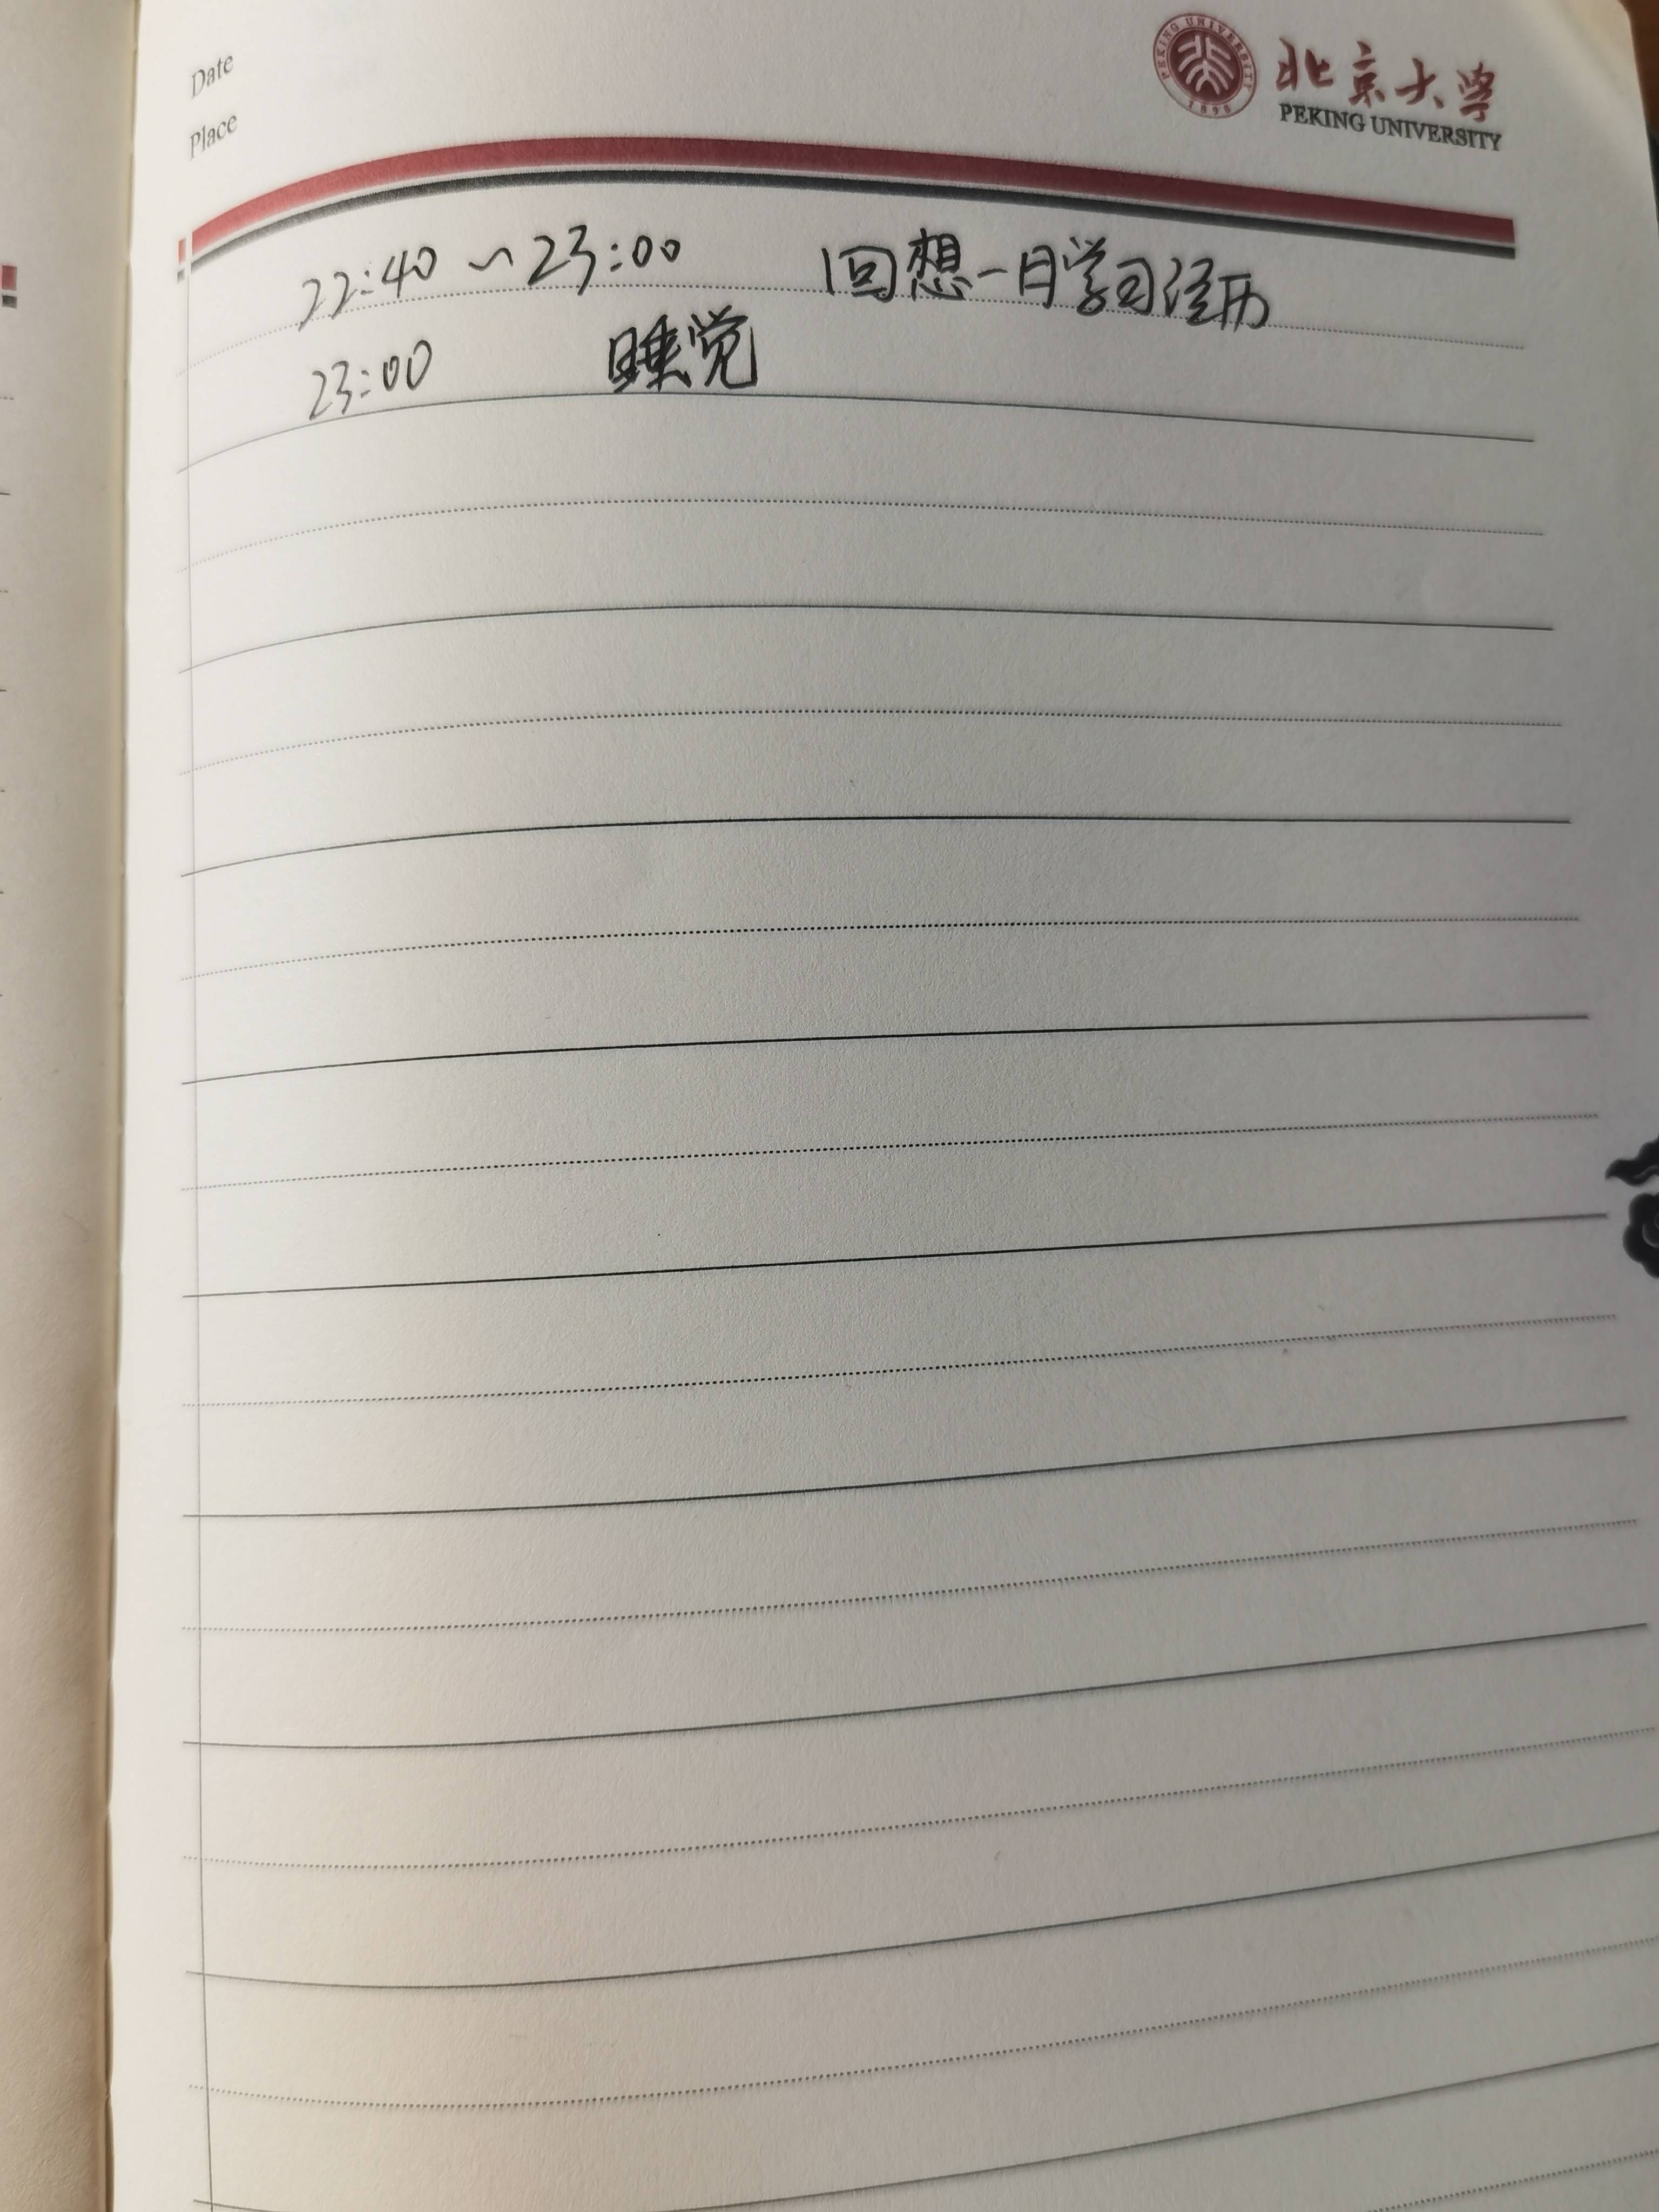 Date
Place
PEKING UNIVERSITY
1898
北京大学
PEKING UNIVERSITY
22:40 ~ 23:00 回想一日学习经历
23:00 睡觉